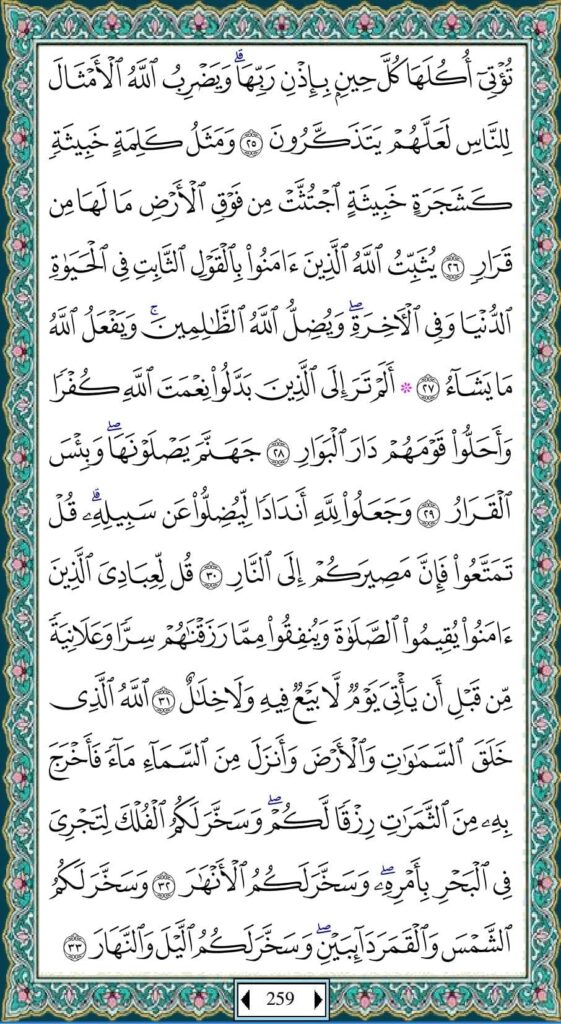 تُؤْتِىٓ أُكُلَهَا كُلَّ حِينٍۭ بِإِذْنِ رَبِّهَاۗ وَيَضْرِبُ ٱللَّهُ ٱلْأَمْثَالَ
لِلنَّاسِ لَعَلَّهُمْ يَتَذَكَّرُونَ ٢٥ وَمَثَلُ كَلِمَةٍ خَبِيثَةٍ
كَشَجَرَةٍ خَبِيثَةٍ ٱجْتُثَّتْ مِن فَوْقِ ٱلْأَرْضِ مَا لَهَا مِن
قَرَارٍ ٢٦ يُثَبِّتُ ٱللَّهُ ٱلَّذِينَ ءَامَنُوا۟ بِٱلْقَوْلِ ٱلثَّابِتِ فِى ٱلْحَيَوٰةِ
ٱلدُّنْيَا وَفِى ٱلْءَاخِرَةِۖ وَيُضِلُّ ٱللَّهُ ٱلظَّٰلِمِينَۚ وَيَفْعَلُ ٱللَّهُ
مَا يَشَآءُ ٢٧ ۞ أَلَمْ تَرَ إِلَى ٱلَّذِينَ بَدَّلُوا۟ نِعْمَتَ ٱللَّهِ كُفْرًا
وَأَحَلُّوا۟ قَوْمَهُمْ دَارَ ٱلْبَوَارِ ٢٨ جَهَنَّمَ يَصْلَوْنَهَاۖ وَبِئْسَ
ٱلْقَرَارُ ٢٩ وَجَعَلُوا۟ لِلَّهِ أَندَادًا لِّيُضِلُّوا۟ عَن سَبِيلِهِۦۗ قُلْ
تَمَتَّعُوا۟ فَإِنَّ مَصِيرَكُمْ إِلَى ٱلنَّارِ ٣٠ قُل لِّعِبَادِىَ ٱلَّذِينَ
ءَامَنُوا۟ يُقِيمُوا۟ ٱلصَّلَوٰةَ وَيُنفِقُوا۟ مِمَّا رَزَقْنَٰهُمْ سِرًّا وَعَلَانِيَةً
مِّن قَبْلِ أَن يَأْتِىَ يَوْمٌ لَّا بَيْعٌ فِيهِ وَلَا خِلَٰلٌ ٣١ ٱللَّهُ ٱلَّذِى
خَلَقَ ٱلسَّمَٰوَٰتِ وَٱلْأَرْضَ وَأَنزَلَ مِنَ ٱلسَّمَآءِ مَآءً فَأَخْرَجَ
بِهِۦ مِنَ ٱلثَّمَرَٰتِ رِزْقًا لَّكُمْۖ وَسَخَّرَ لَكُمُ ٱلْفُلْكَ لِتَجْرِىَ
فِى ٱلْبَحْرِ بِأَمْرِهِۦۖ وَسَخَّرَ لَكُمُ ٱلْأَنْهَٰرَ ٣٢ وَسَخَّرَ لَكُمُ
ٱلشَّمْسَ وَٱلْقَمَرَ دَآئِبَيْنِۖ وَسَخَّرَ لَكُمُ ٱلَّيْلَ وَٱلنَّهَارَ ٣٣
259